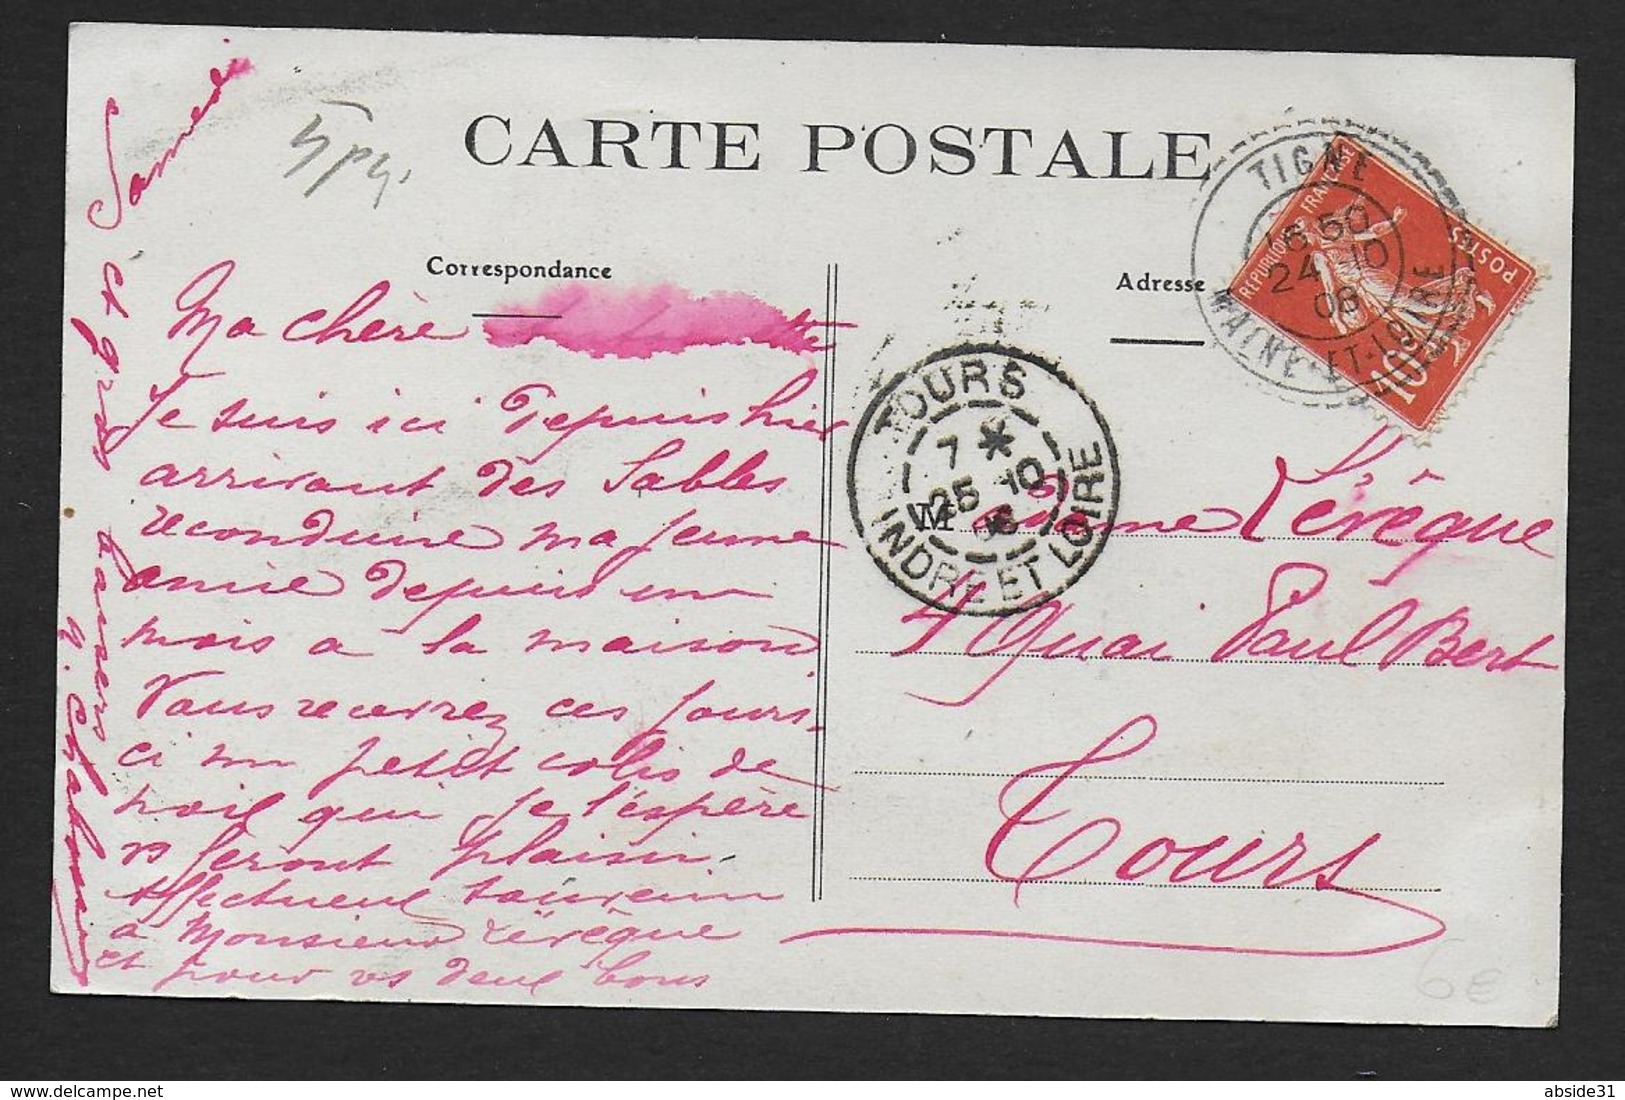 CARTE POSTALE
Correspondance
Adresse
Samedi
Ma chère
Je suis ici depuis hier
arrivant des Sables
reconduire ma jeune
amie depuis un
mois à la maison
Vous recevrez ces jours-
ci un petit colis de
qui je l'espère
vs feront plaisir.
Affectueux souvenir
à Monsieur Lévêque
et pour vs deux bons
et gros baisers
TIGNE
16 50
24 10
08
MAINE-ET-LOIRE
REPUBLIQUE FRANCAISE
POSTES
10
TOURS
7 *
25 10
INDRE ET LOIRE
M adame Lévêque
4 Quai Paul Bert
Tours
6€
delcampe.net
abside31